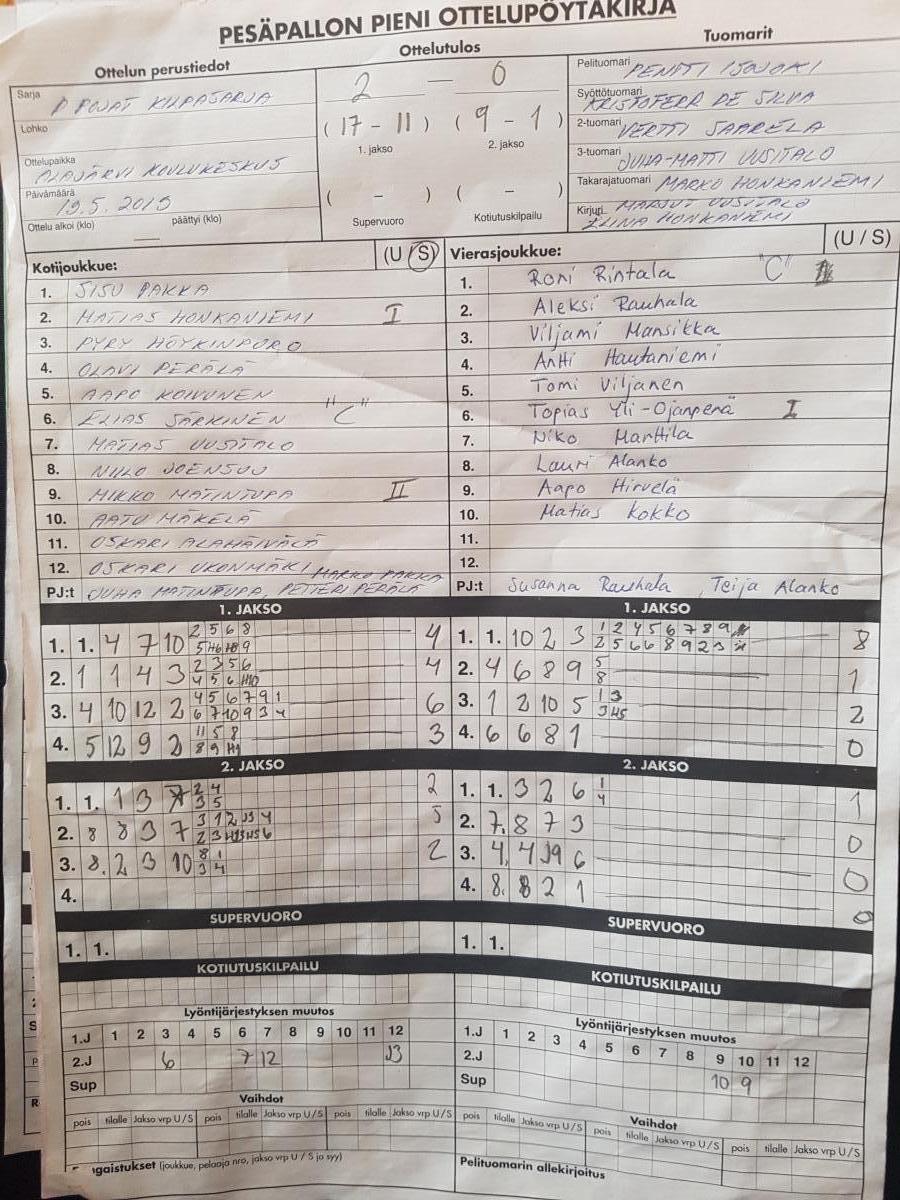 PESÄPALLON PIENI OTTELUPÖYTÄKIRJA
Ottelun perustiedot
Ottelutulos
Tuomarit
Sarja D POJAT KILPASARJA
2 — 0
Pelituomari PENTTI ISOJOKI
Lohko
(17 - 11) (9 - 1)
Syöttötuomari KRISTOFERR DE SILVA
1. jakso 2. jakso
2-tuomari VERTTI SAARELA
Ottelupaikka ALAJÄRVI KOULUKESKUS
3-tuomari JUHA-MATTI UUSITALO
Päivämäärä 19.5.2019
( - ) ( - )
Takarajatuomari MARKO HONKANIEMI
Ottelu alkoi (klo) päättyi (klo)
Supervuoro Kotiutuskilpailu
Kirjuri MARJUT UUSITALO
ELINA HONKANIEMI
Kotijoukkue: (U / S)
Vierasjoukkue: (U / S)
1. SISU PAKKA
2. MATIAS HONKANIEMI I
3. PYRY HÖYKINPURO
4. OLAVI PERÄLÄ
5. AAPO KOIVUNEN
6. ELIAS SÄRKINEN "C"
7. MATIAS UUSITALO
8. NIILO JOENSUU
9. MIKKO MATINTUPA II
10. AATU MÄKELÄ
11. OSKARI ALAHÄIVÄLÄ
12. OSKARI UKONMÄKI
PJ:t JUHA MATINTUPA, PETTERI PERÄLÄ MARKO PAKKA
1. Roni Rintala "C"
2. Aleksi Rauhala
3. Viljami Mansikka
4. Antti Hautaniemi
5. Tomi Viljanen
6. Topias Yli-Ojanperä I
7. Niko Marttila
8. Lauri Alanko
9. Aapo Hirvelä
10. Matias Kokko
11.
12.
PJ:t Susanna Rauhala, Teija Alanko
1. JAKSO
1. 1. 4 7 10 2 5 6 8 4
2. 1 1 4 3 2 3 5 6 4
3. 4 10 12 2 4 5 6 7 9 1 6
6 7 10 9 3 4
4. 5 12 9 2 11 5 8 3
1. JAKSO
1. 1. 10 2 3 1 2 4 5 6 7 8 9 8
2 5 6 6 8 9 2 3
2. 4 6 8 9 5 1
8
3. 1 2 10 5 1 3 2
4. 6 6 8 1 0
2. JAKSO
1. 1. 1 3 7 2 4 2
3 5
2. 8 8 3 7 3 1 2 J3 4 5
3. 8. 2 3 10 8 1 2
3 4
4.
2. JAKSO
1. 1. 3 2 6 1 1
4
2. 7. 8 7 3 0
3. 4. 4 J9 6 0
4. 8. 8 2 1 0
SUPERVUORO
1. 1.
SUPERVUORO
1. 1.
KOTIUTUSKILPAILU
KOTIUTUSKILPAILU
Lyöntijärjestyksen muutos
1.J 1 2 3 4 5 6 7 8 9 10 11 12
2.J 6 7 12 J3
Sup
Lyöntijärjestyksen muutos
1.J 1 2 3 4 5 6 7 8 9 10 11 12
2.J 10 9
Sup
Vaihdot
pois tilalle Jakso vrp U / S pois tilalle Jakso vrp U / S pois tilalle Jakso vrp U / S
Vaihdot
pois tilalle Jakso vrp U / S pois tilalle Jakso vrp U / S pois tilalle Jakso vrp U / S
ngaistukset (joukkue, pelaaja nro, jakso vrp U / S ja syy)
Pelituomarin allekirjoitus